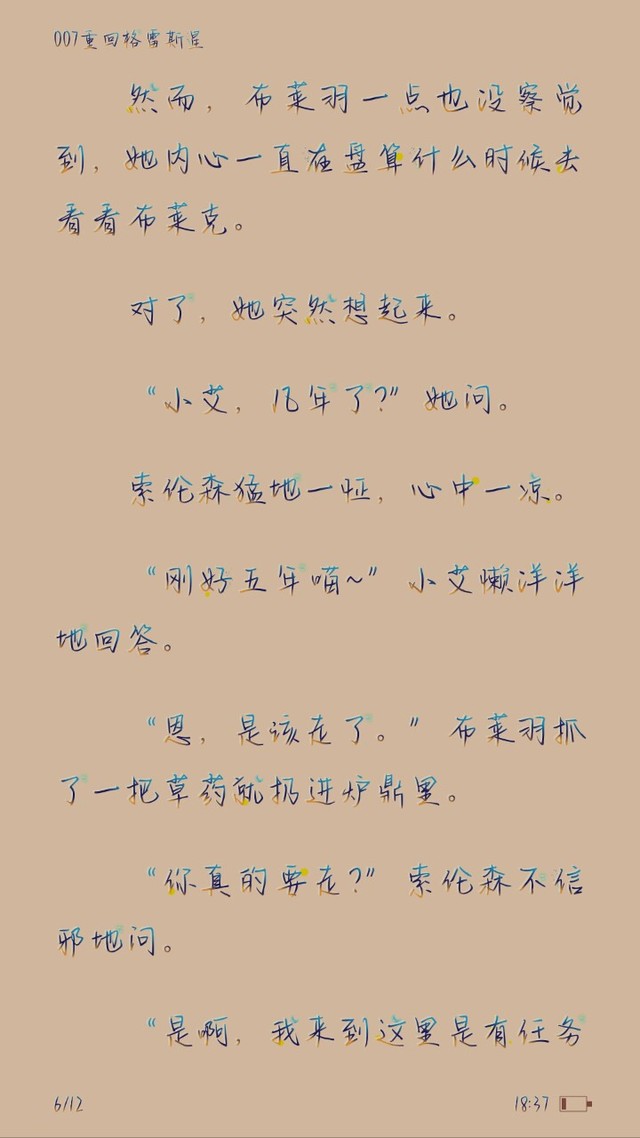 007重回格雷斯星
然而，布莱羽一点也没察觉
到，她内心一直在盘算什么时候去
看看布莱克。
对了，她突然想起来。
“小艾，几年了？”她问。
索伦森猛地一怔，心中一凉。
“刚好五年喵~”小艾懒洋洋
地回答。
“恩，是该走了。”布莱羽抓
了一把草药就扔进炉鼎里。
“你真的要走？”索伦森不信
邪地问。
“是啊，我来到这里是有任务
6/12
18:37